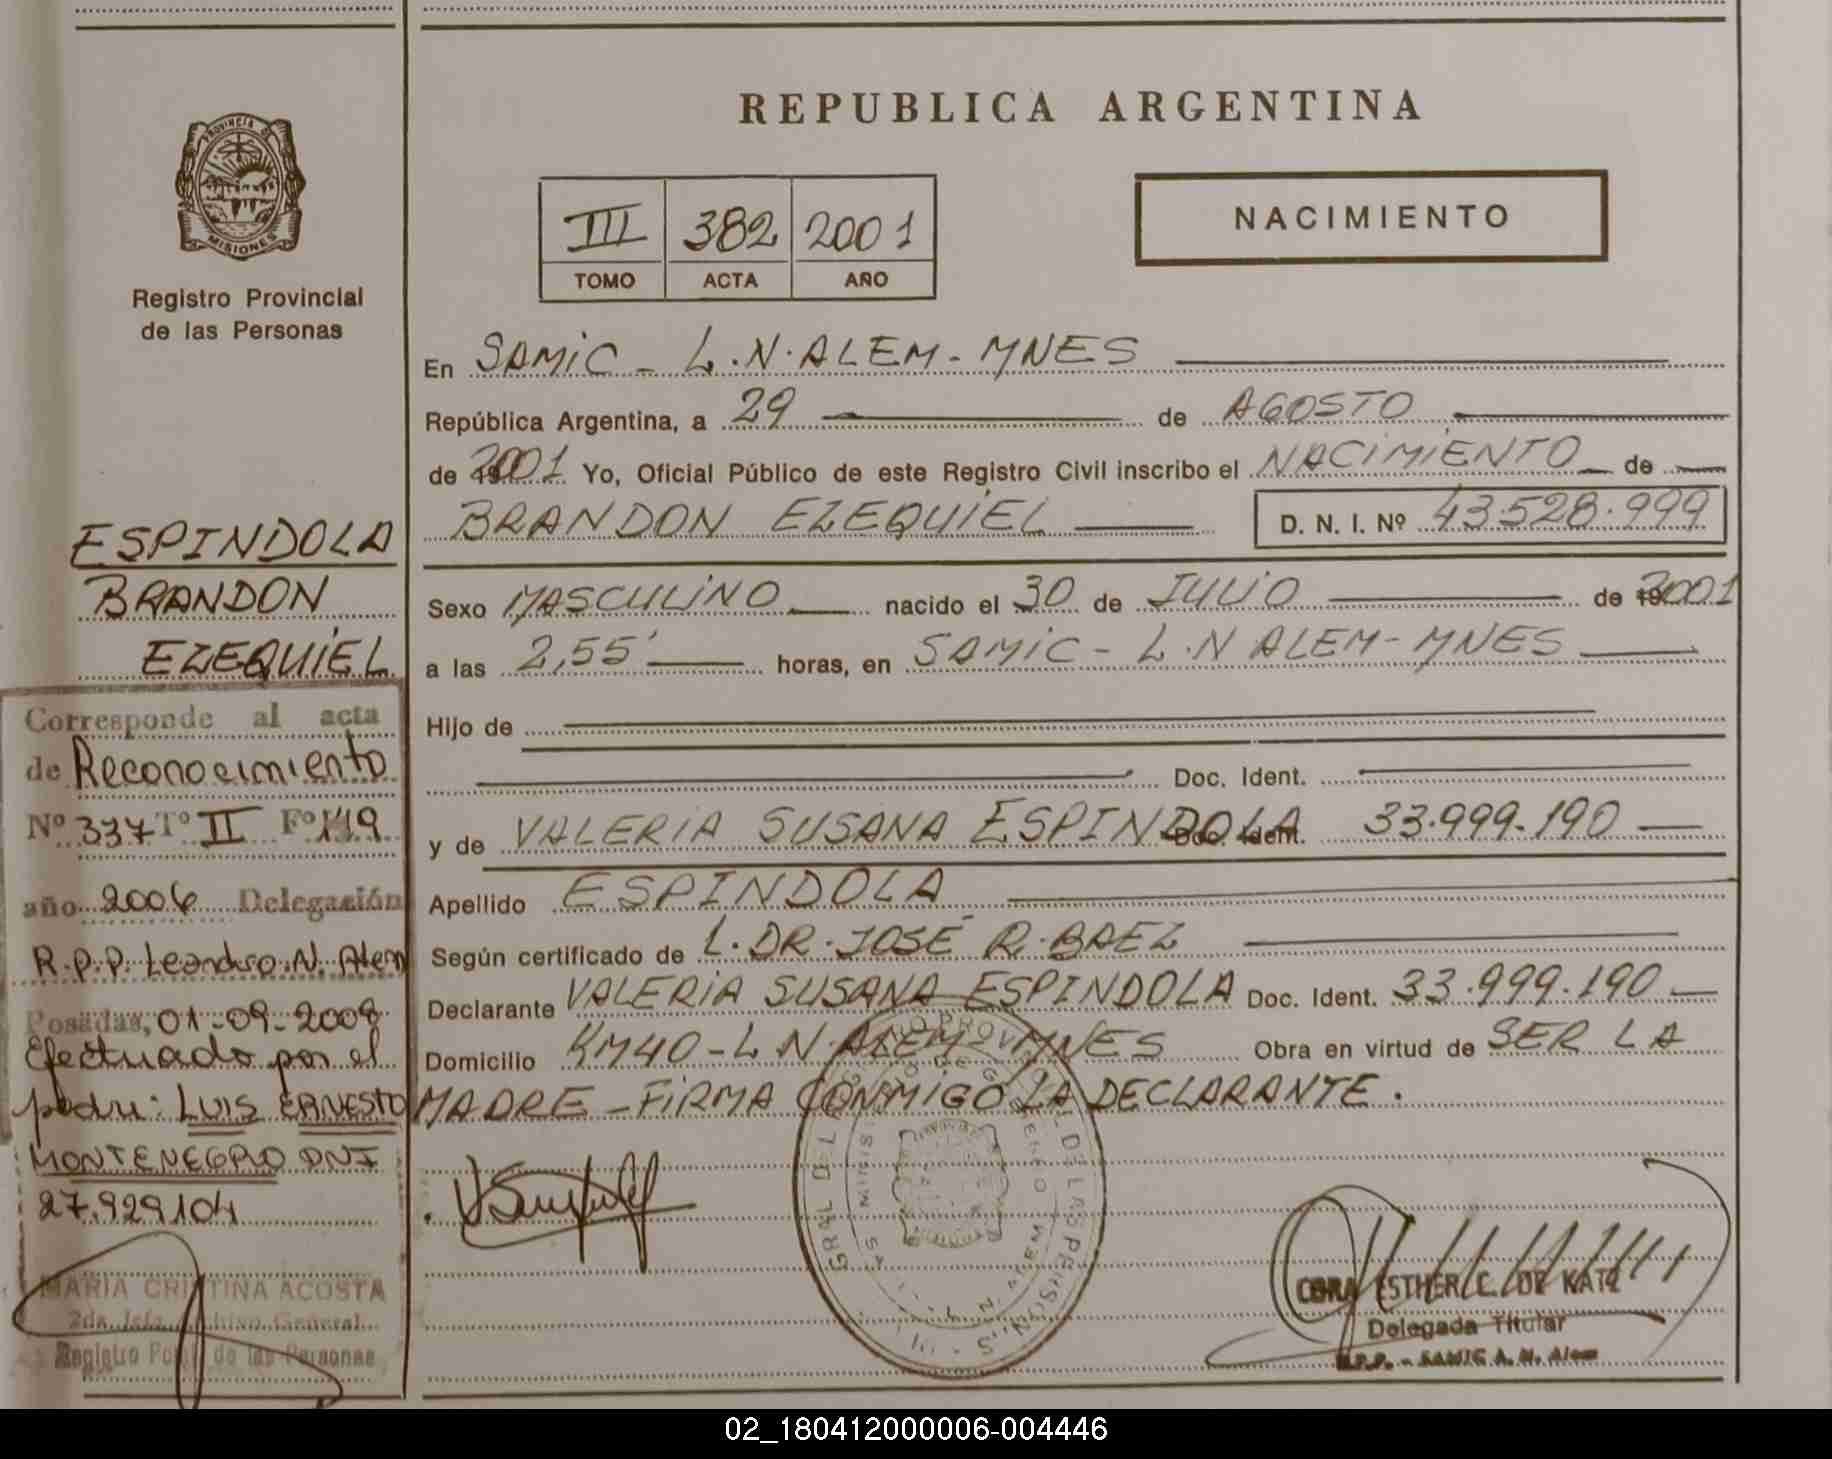 PROVINCIA DE
MISIONES
Registro Provincial
de las Personas
ESPINDOLA
BRANDON
EZEQUIEL
Corresponde al acta
de Reconocimiento
Nº 337 Tº II Fº 119
año 2006 Delegación
R.P.P. Leandro N. Alem
Posadas, 01-09-2008
Efectuado por el
padre: LUIS ERNESTO
MONTENEGRO DNI
27.929.104
MARIA CRISTINA ACOSTA
2da. Jefa Archivo General
Registro Pcial. de las Personas
REPUBLICA ARGENTINA
III 382 2001
TOMO ACTA AÑO
NACIMIENTO
En SAMIC - L.N. ALEM - MNES
República Argentina, a 29 de AGOSTO
de 2001 Yo, Oficial Público de este Registro Civil inscribo el NACIMIENTO de
BRANDON EZEQUIEL D. N. I. Nº 43.528.999
Sexo MASCULINO nacido el 30 de JULIO de 2001
a las 2,55' horas, en SAMIC - L.N ALEM - MNES
Hijo de
Doc. Ident.
y de VALERIA SUSANA ESPINDOLA Doc. Ident. 33.999.190
Apellido ESPINDOLA
Según certificado de L. DR. JOSÉ R. BAEZ
Declarante VALERIA SUSANA ESPINDOLA Doc. Ident. 33.999.190
Domicilio KM40 - L N ALEM - MNES Obra en virtud de SER LA
MADRE - FIRMA CONMIGO LA DECLARANTE.
ESTHER C. DE KATZ
Delegada Titular
R.P.P. - SAMIC A. N. Alem
02_180412000006-004446